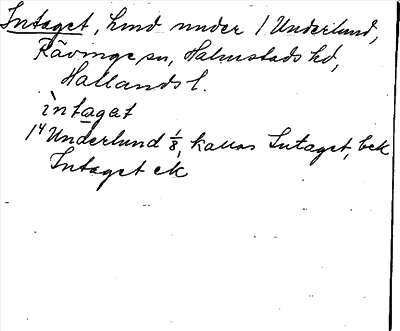 Intaget, hmd under 1 Underlund,
Rävinge sn, Halmstads hd,
Hallands l.
ìntagat
1⁴ Underlund 1/8, kallas Intaget, bek
Intaget ek